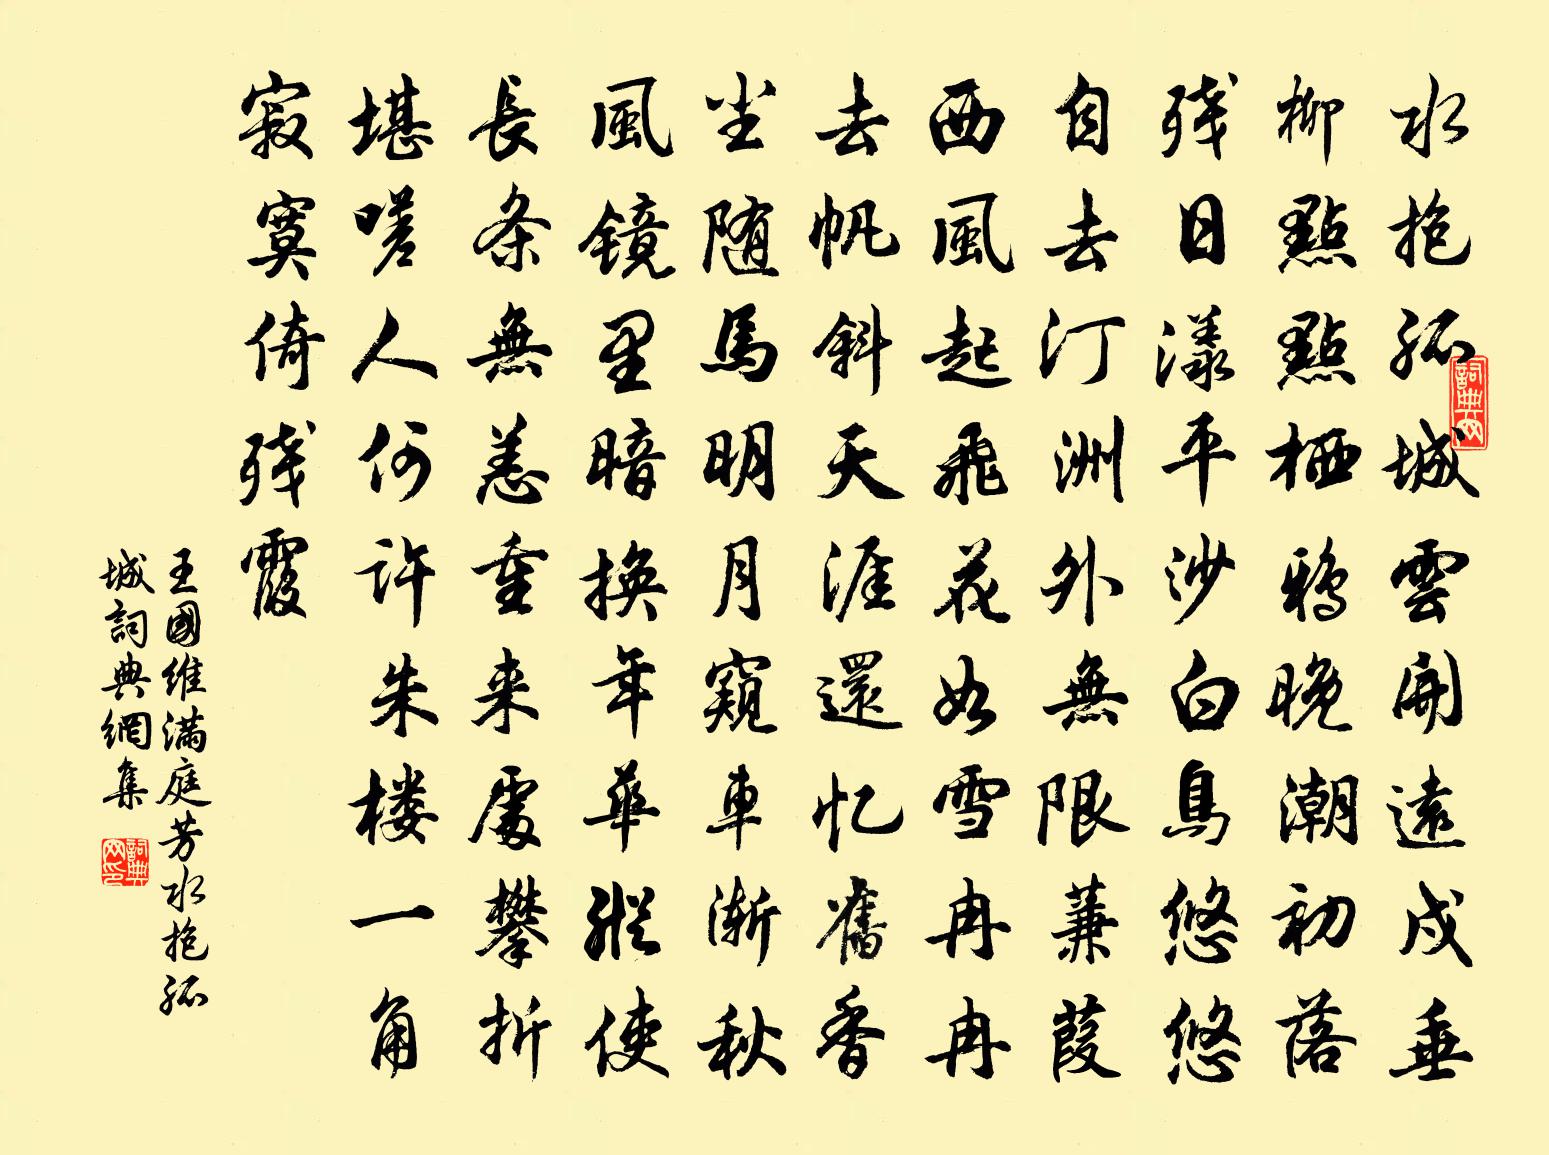 水抱孤城雲開遠戍垂
柳點點栖鴉晚潮初落
残日漾平沙白鳥悠悠
自去汀洲外無限蒹葭
西風起飛花如雪冉冉
去帆斜天涯還忆舊香
尘随馬明月窺車漸秋
風镜里暗換年華縱使
長条無恙重来處攀折
堪嗟人何許朱楼一角
寂寞倚残霞
王國维满庭芳水抱孤
城詞典網集
詞典网
詞典网印